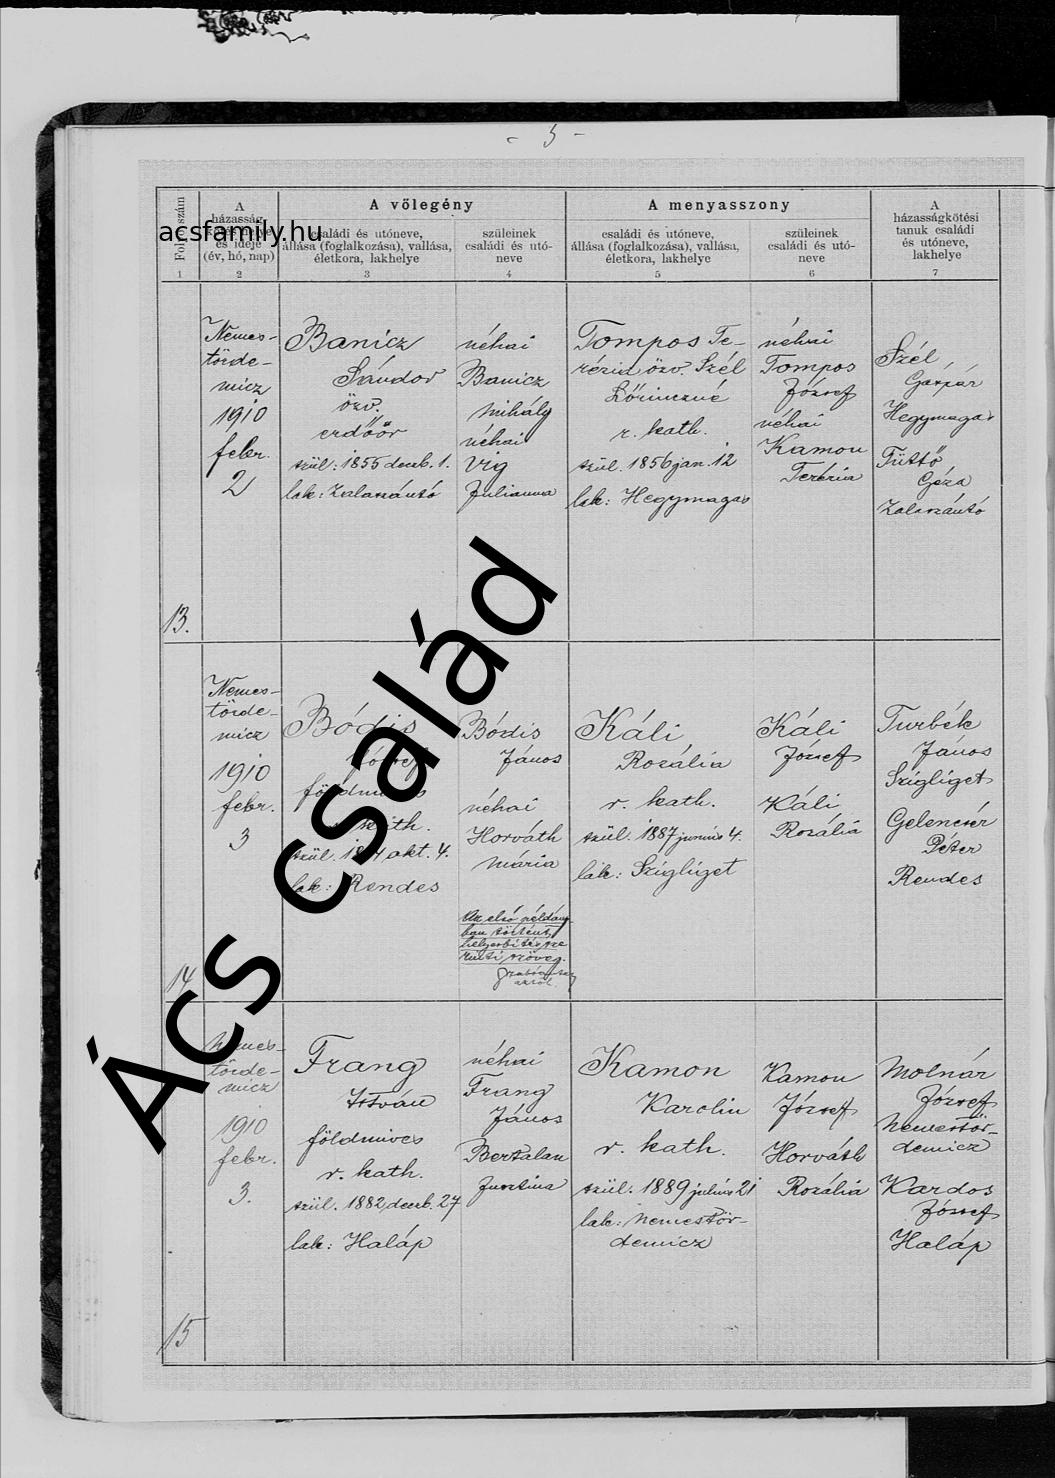 - 5 -
A
házasság
és ideje
(év, hó, nap)
A vőlegény
A menyasszony
A
házasságkötési
tanuk családi
és utóneve,
lakhelye
családi és utóneve,
állása (foglalkozása), vallása,
életkora, lakhelye
szüleinek
családi és utó-
neve
családi és utóneve,
állása (foglalkozása), vallása,
életkora, lakhelye
szüleinek
családi és utó-
neve
1 2 3 4 5 6 7
acsfamily.hu
Ács család
13.
Nemes-
törde-
micz
1910
febr.
2
Banicz
Sándor
özv.
erdőőr
szül: 1855 decb. 1.
lak: Zalaszántó
néhai
Banicz
Mihály
néhai
Vig
Julianna
Tompos Te-
rézia özv. Szél
Lőrinczné
r. kath.
szül. 1856 jan. 12
lak: Hegymagas
néhai
Tompos
József
néhai
Kamon
Terézia
Szél
Gáspár
Hegymagas
Tüttő
Géza
Zalaszántó
14
Nemes-
törde-
micz
1910
febr.
3
Bódis
József
földmives
kath.
szül. okt. 4.
lak: Rendes
Bódis
János
néhai
Horváth
Mária
Az első példány-
ban történt
szöveg.
Káli
Rozália
r. kath.
szül. 1887 junius 4.
lak: Szigliget
Káli
József
Káli
Rozália
Turbék
János
Szigliget
Gelencsér
Péter
Rendes
15
Nemes-
törde-
micz
1910
febr.
3.
Frang
István
földmives
r. kath.
szül. 1882 decb. 27
lak: Haláp
néhai
Frang
János
Bertalan
Jusztina
Kamon
Karolin
r. kath.
szül. 1889 julius 21
lak: Nemestör-
demicz
Kamon
József
Horváth
Rozália
Molnár
József
Nemestör-
demicz
Kardos
József
Haláp